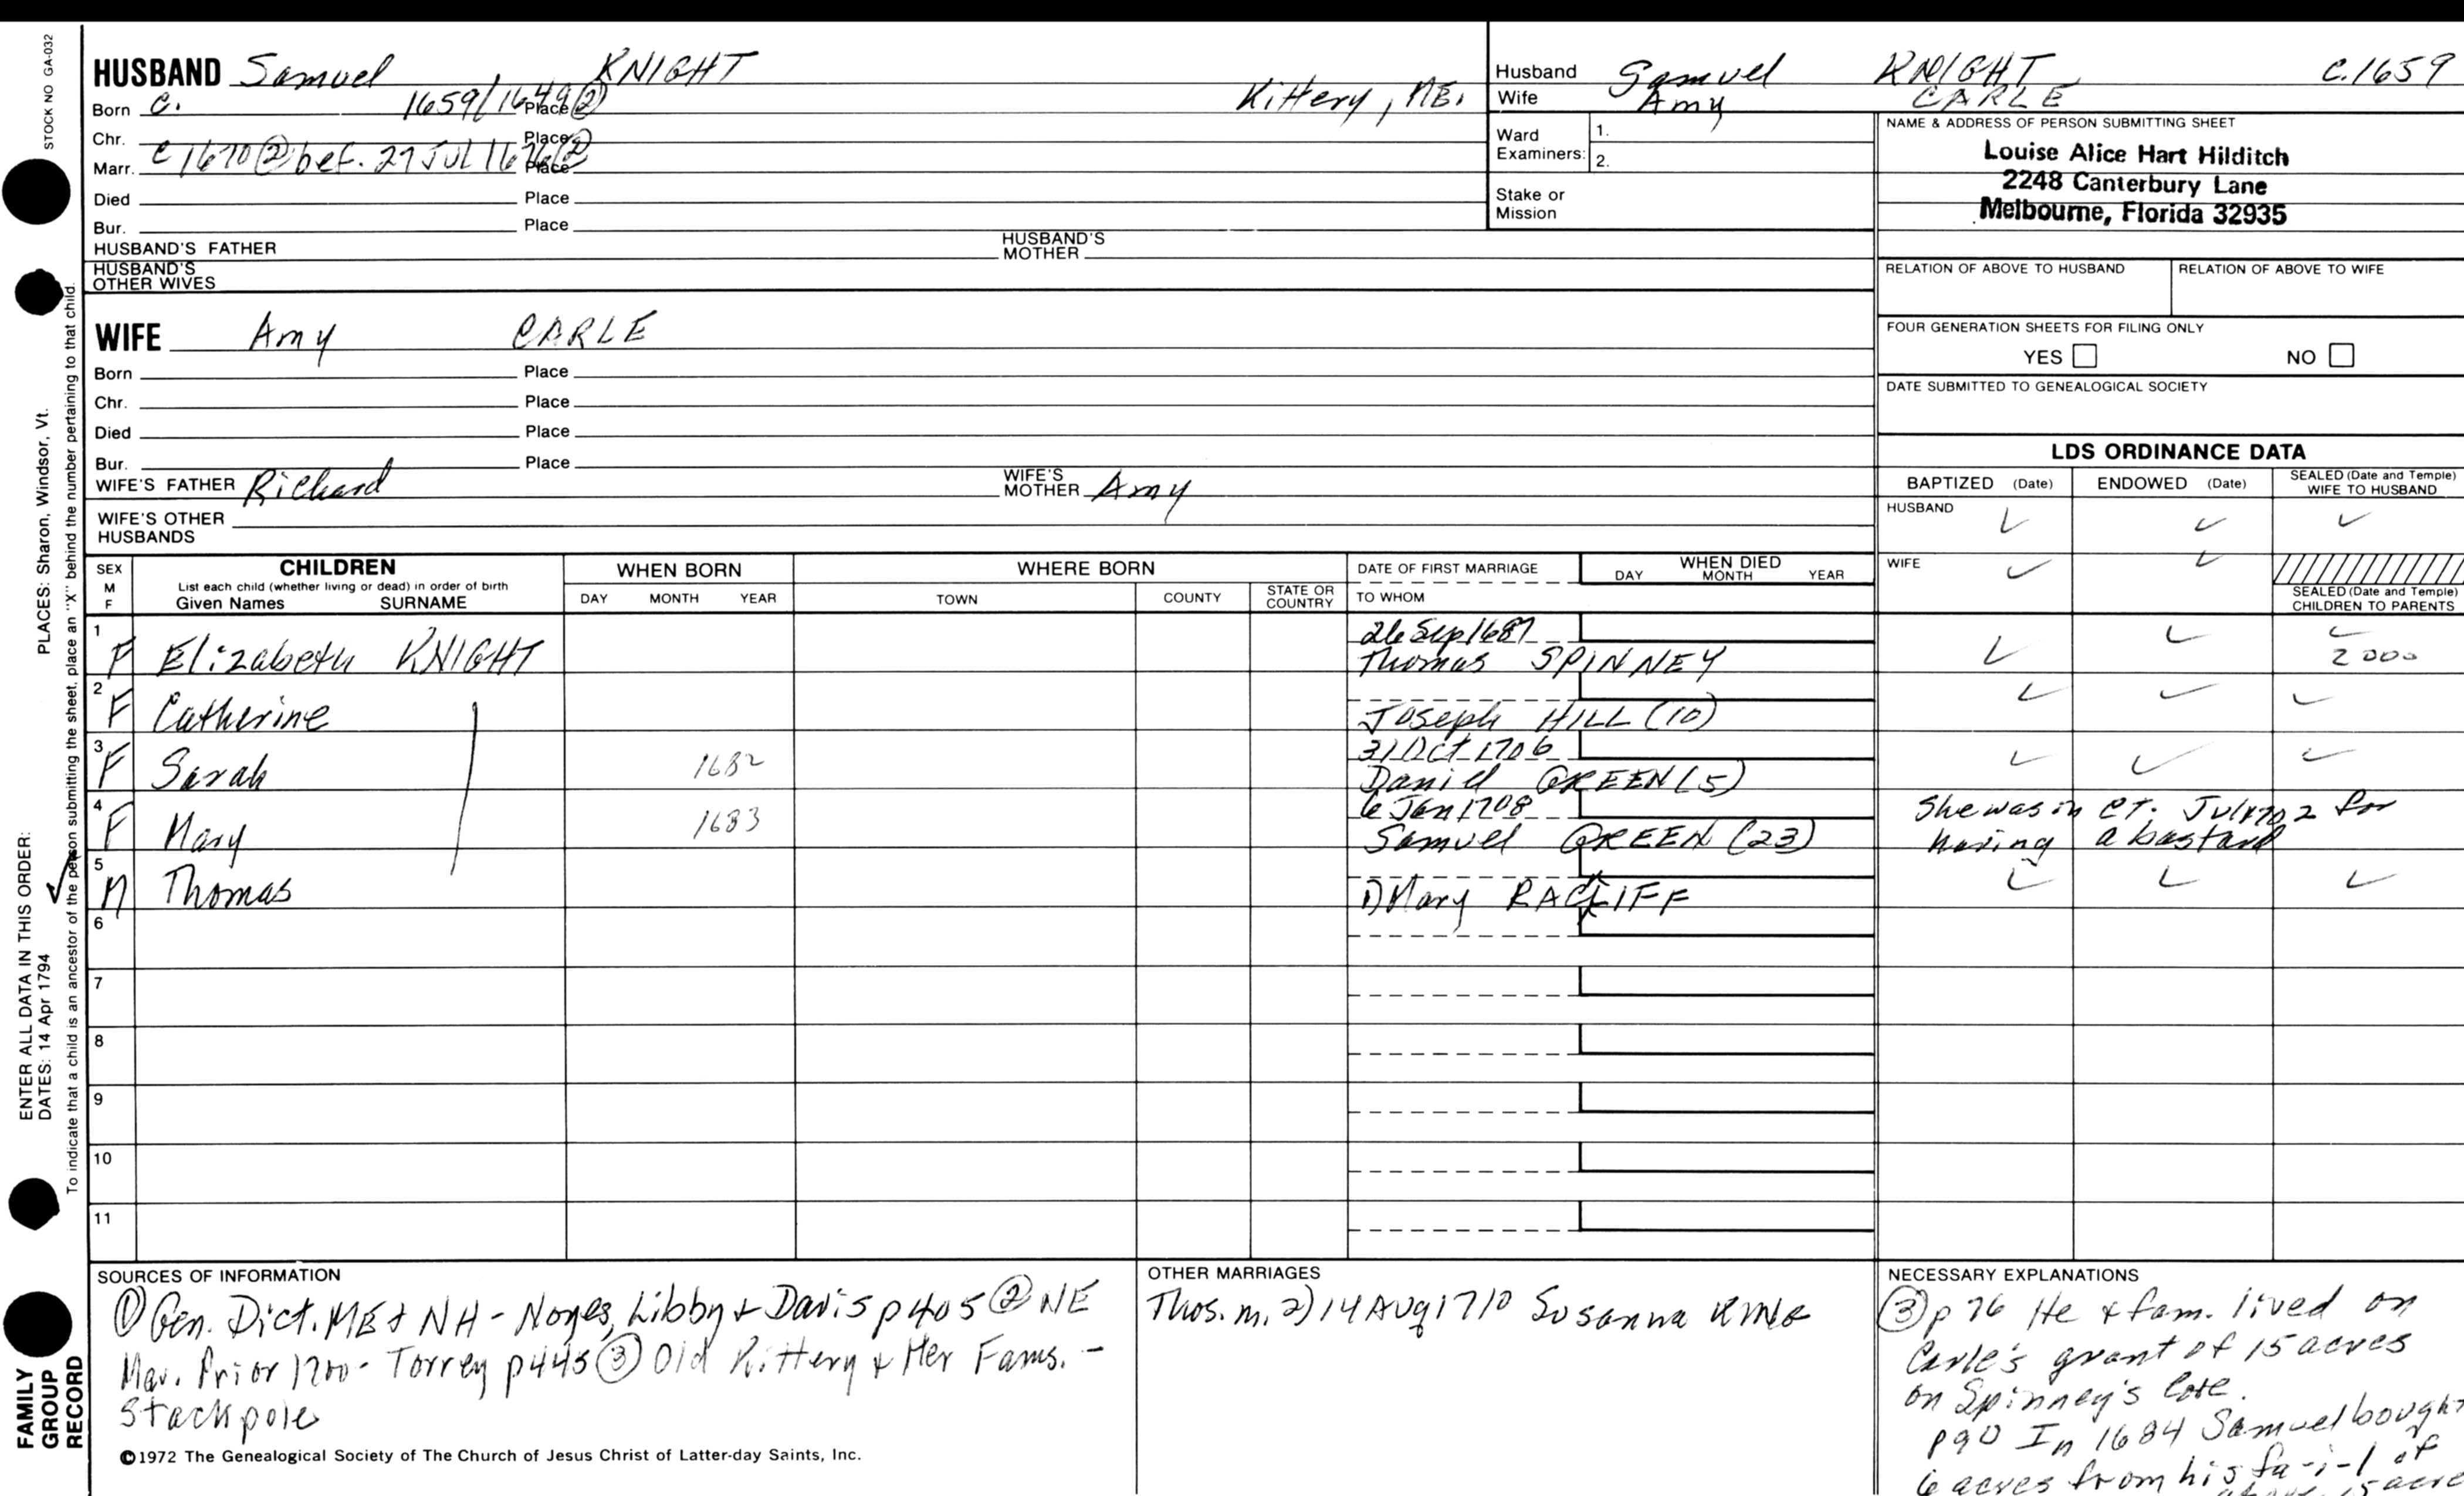 STOCK NO GA-032
HUSBAND Samuel KNIGHT
Born C. 1659/1649② Place Kittery, ME.
Chr. Place
Marr. C 1670② bef. 27 JUL 1676② Place
Died Place
Bur. Place
HUSBAND'S FATHER HUSBAND'S MOTHER
HUSBAND'S OTHER WIVES
Husband Samuel KNIGHT C.1659
Wife Amy CARLE
Ward Examiners: 1.
2.
Stake or Mission
NAME & ADDRESS OF PERSON SUBMITTING SHEET
Louise Alice Hart Hilditch
2248 Canterbury Lane
Melbourne, Florida 32935
RELATION OF ABOVE TO HUSBAND RELATION OF ABOVE TO WIFE
FOUR GENERATION SHEETS FOR FILING ONLY
YES NO
DATE SUBMITTED TO GENEALOGICAL SOCIETY
WIFE Amy CARLE
Born Place
Chr. Place
Died Place
Bur. Place
WIFE'S FATHER Richard WIFE'S MOTHER Amy
WIFE'S OTHER HUSBANDS
LDS ORDINANCE DATA
BAPTIZED (Date) ENDOWED (Date) SEALED (Date and Temple) WIFE TO HUSBAND
HUSBAND ✓ ✓ ✓
WIFE ✓ ✓
SEALED (Date and Temple) CHILDREN TO PARENTS
SEX M F CHILDREN WHEN BORN WHERE BORN DATE OF FIRST MARRIAGE WHEN DIED
List each child (whether living or dead) in order of birth
Given Names SURNAME DAY MONTH YEAR TOWN COUNTY STATE OR COUNTRY TO WHOM DAY MONTH YEAR
1 F Elizabeth KNIGHT 26 Sep 1687 Thomas SPINNEY ✓ ✓ ✓ 2000
2 F Catherine Joseph HILL (10) ✓ ✓ ✓
3 F Sarah 1682 31 Oct 1706 Daniel GREEN (5) ✓ ✓ ✓
4 F Mary 1683 6 Jan 1708 Samuel GREEN (23) She was in Ct. Jul 1702 for having a bastard
5 M Thomas 1) Mary RACLIFF ✓ ✓ ✓
6
7
8
9
10
11
SOURCES OF INFORMATION
① Gen. Dict. ME & NH - Noyes, Libby & Davis p405 ② NE
Mar. Prior 1700 - Torrey p445 ③ Old Kittery & Her Fams. -
Stackpole
©1972 The Genealogical Society of The Church of Jesus Christ of Latter-day Saints, Inc.
OTHER MARRIAGES
Thos. m. 2) 14 Aug 1710 Susanna KING
NECESSARY EXPLANATIONS
③ p 76 He & fam. lived on
Carle's grant of 15 acres
on Spinney's Cove.
p90 In 1684 Samuel bought
6 acres from his fa-i-l of
PLACES: Sharon, Windsor, Vt.
ENTER ALL DATA IN THIS ORDER:
DATES: 14 Apr 1794
To indicate that a child is an ancestor of the person submitting the sheet, place an "X" behind the number pertaining to that child.
FAMILY GROUP RECORD